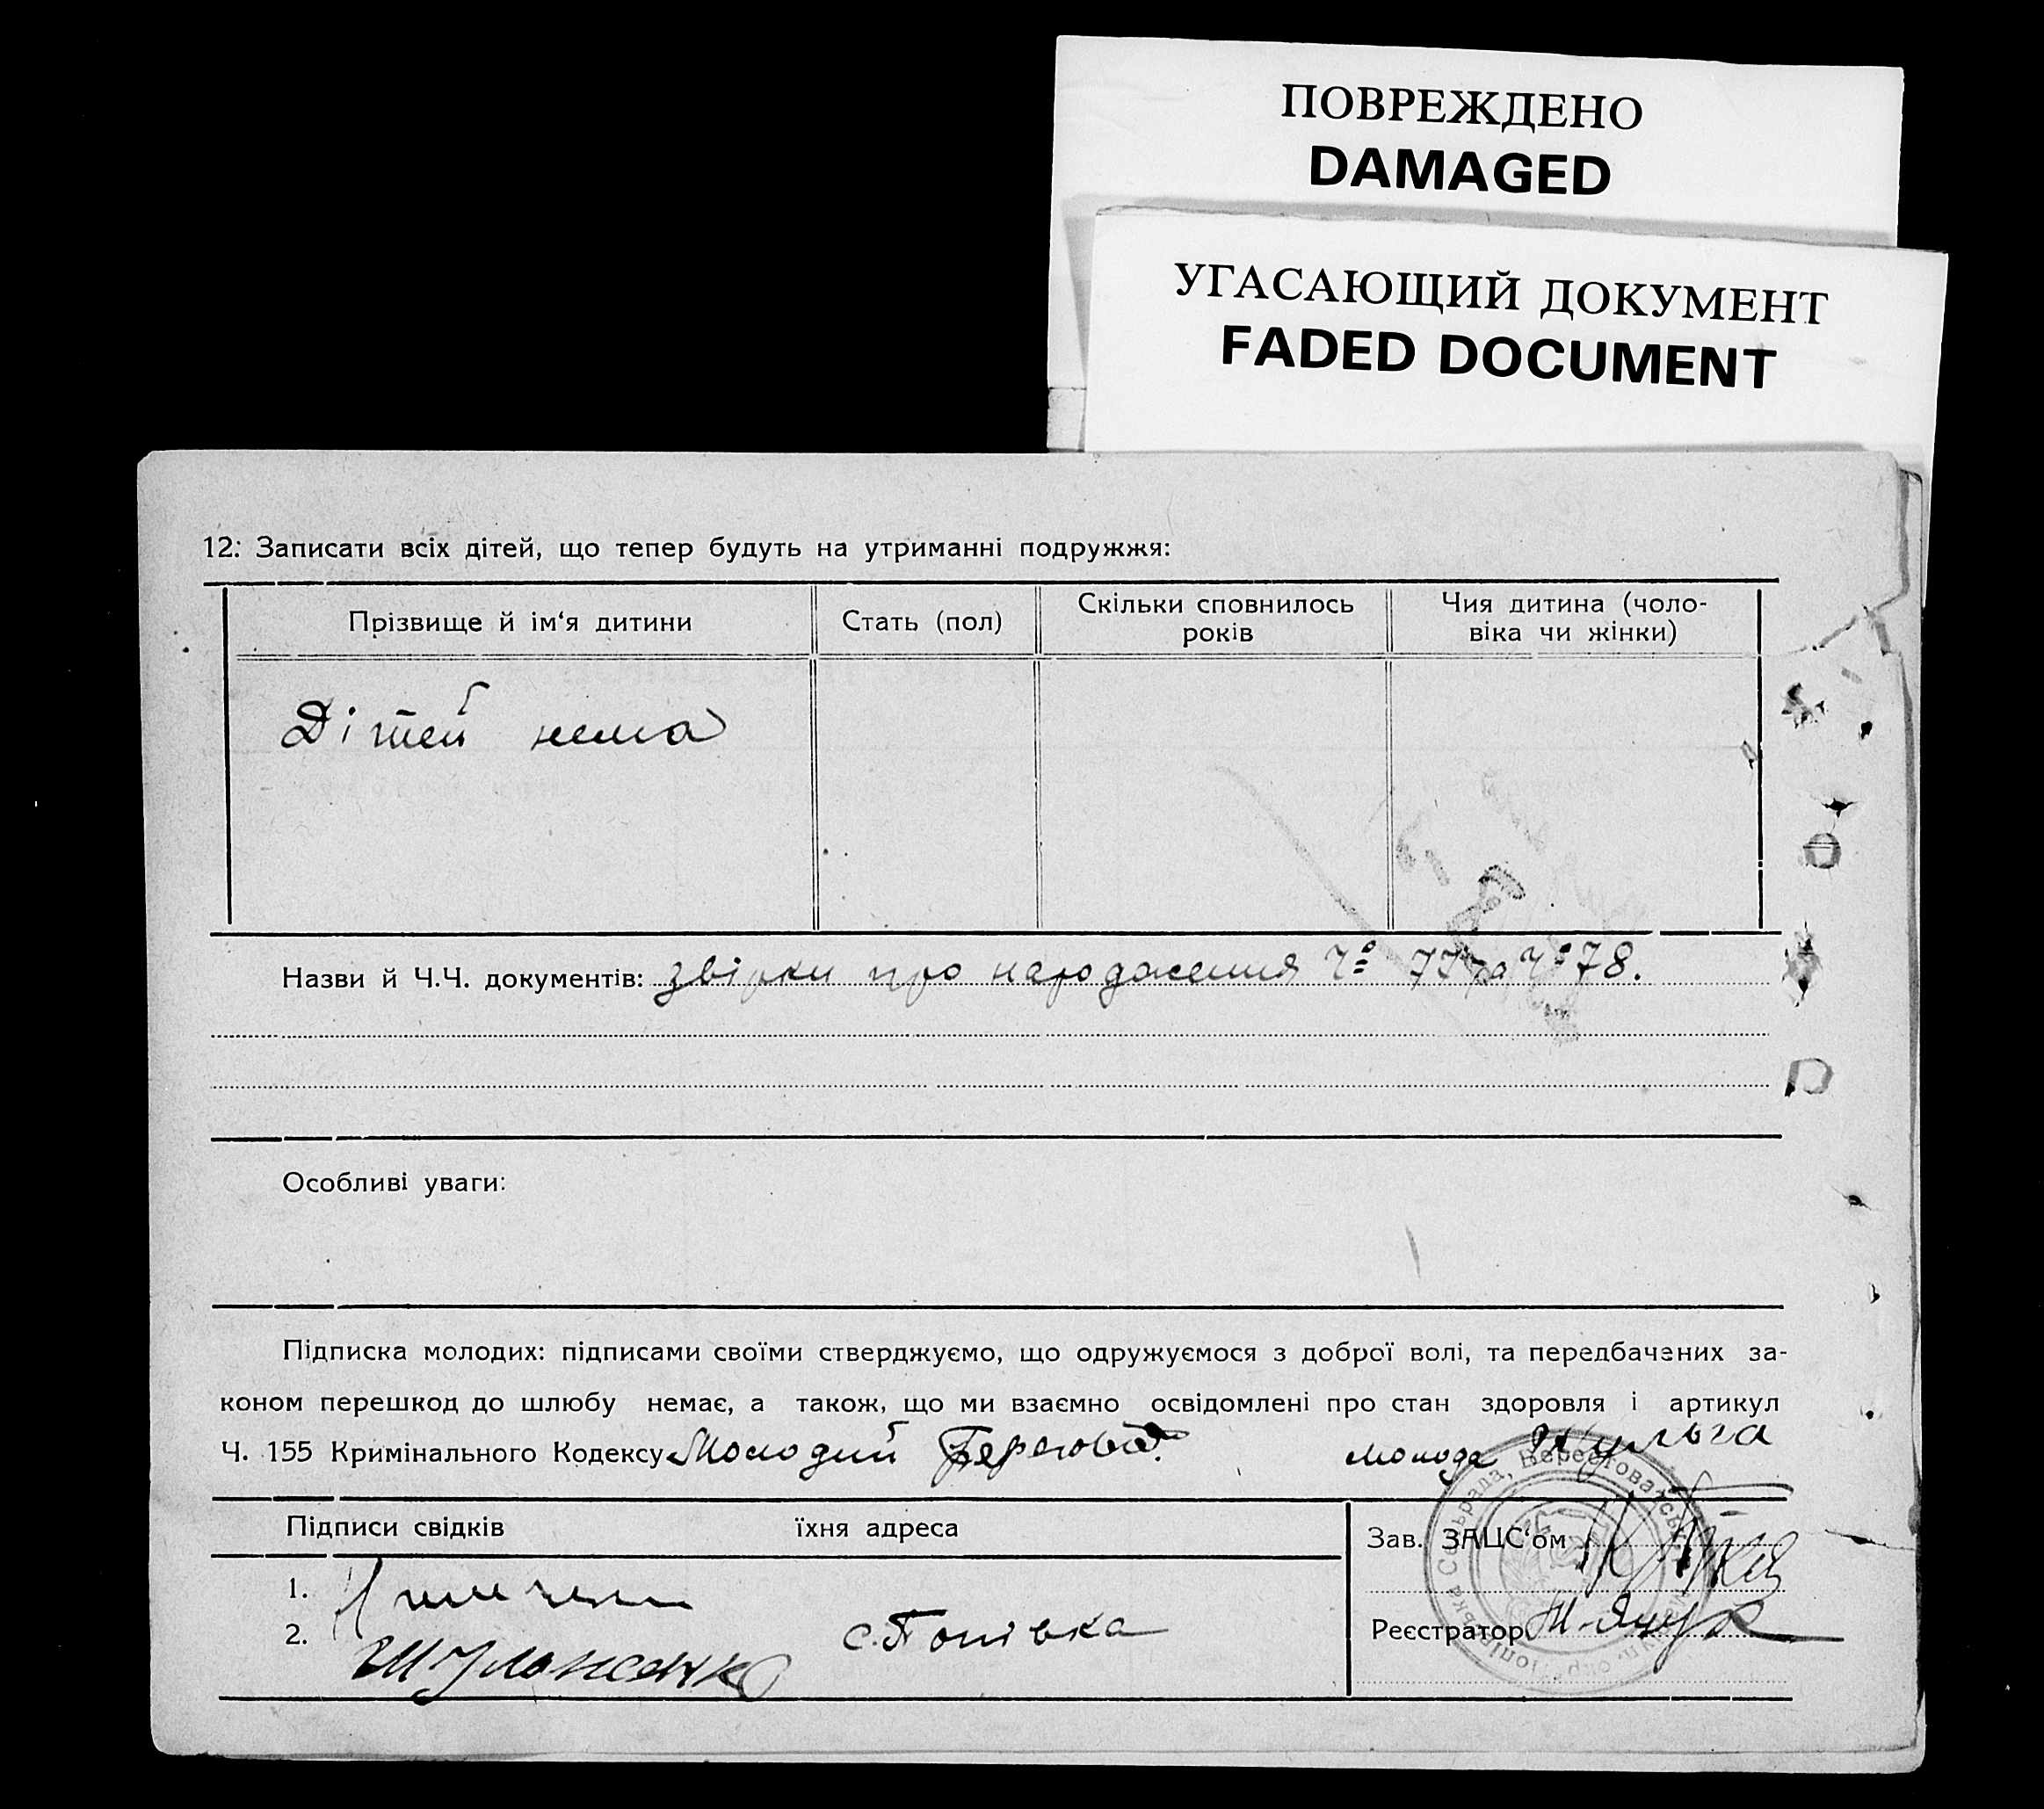 ПОВРЕЖДЕНО
DAMAGED
УГАСАЮЩИЙ ДОКУМЕНТ
FADED DOCUMENT
12: Записати всіх дітей, що тепер будуть на утриманні подружжя:
Прізвище й ім‘я дитини
Стать (пол)
Скільки сповнилось
років
Чия дитина (чоло-
віка чи жінки)
Дітей нема
Назви й Ч.Ч. документів: звірки про народження Ч: 77 та Ч: 78.
Особливі уваги:
Підписка молодих: підписами своїми стверджуємо, що одружуємося з доброї волі, та передбачених за-
коном перешкод до шлюбу немає, а також, що ми взаємно освідомлені про стан здоровля і артикул
Ч. 155 Кримінального Кодексу Молодий Береговой. молода Шульга
Підписи свідків їхня адреса
Зав. ЗАЦС‘ом
1.
2. Шульженко с. Попівка
Реєстратор